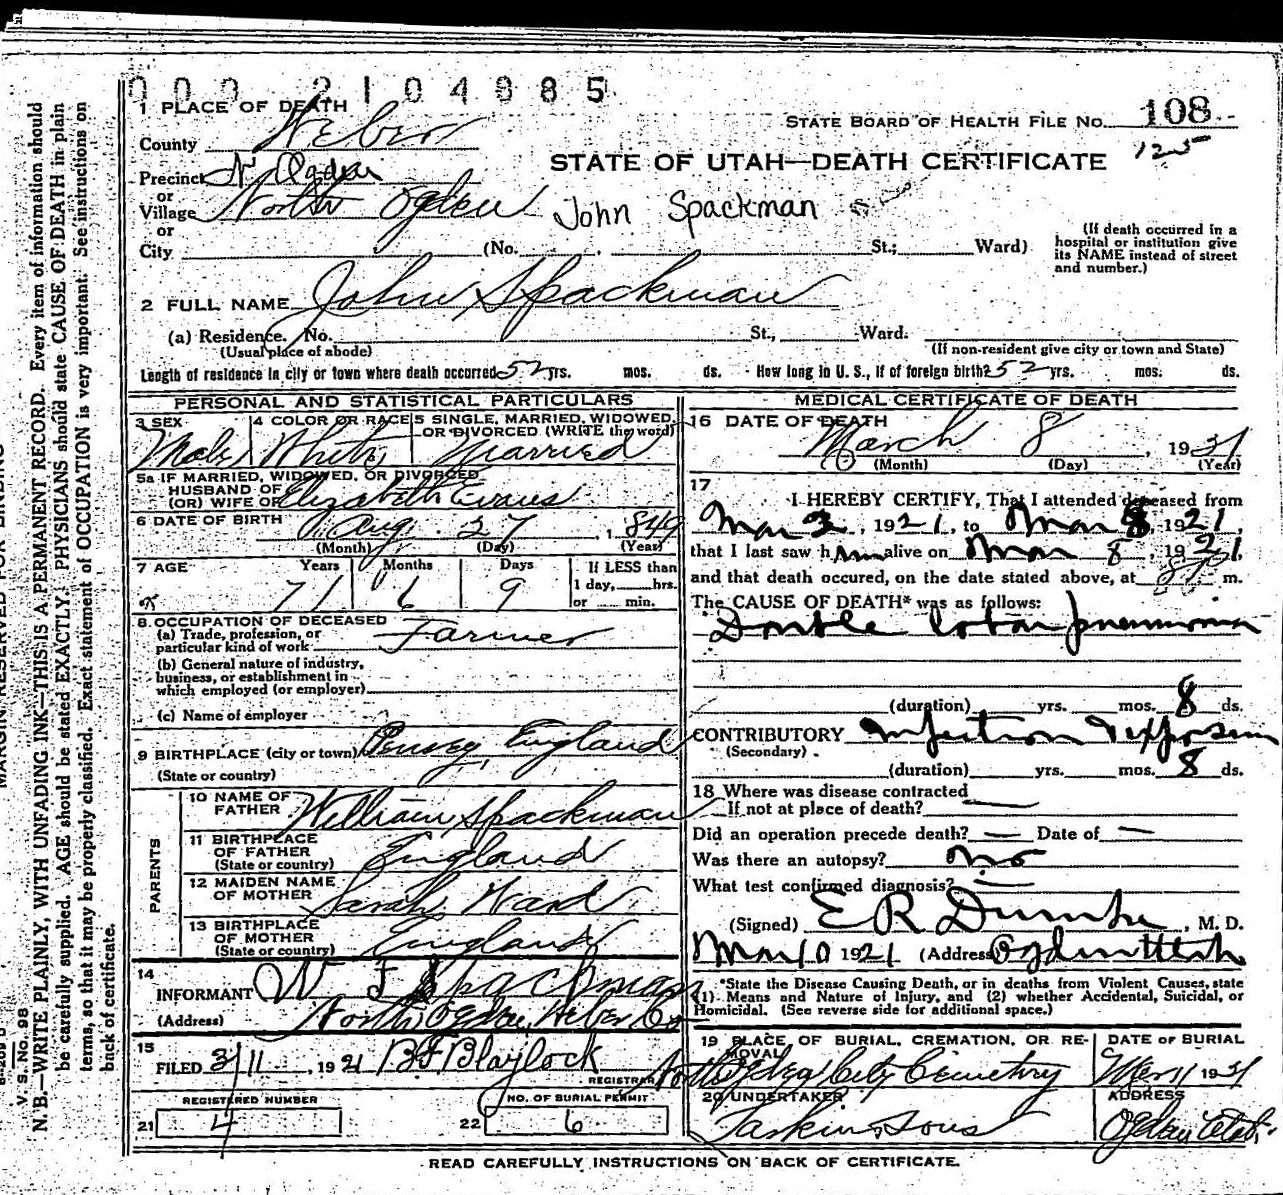 0002104885
1 PLACE OF DEATH
STATE BOARD OF HEALTH FILE No. 108
County Weber
125
STATE OF UTAH—DEATH CERTIFICATE
Precinct N Ogden
or
Village North Ogden
John Spackman
or
City (No. St.; Ward)
(If death occurred in a
hospital or institution give
its NAME instead of street
and number.)
2 FULL NAME John Spackman
(a) Residence. No. St., Ward.
(Usual place of abode) (If non-resident give city or town and State)
Length of residence in city or town where death occurred 52 yrs. mos. ds. How long in U. S., if of foreign birth? 52 yrs. mos. ds.
PERSONAL AND STATISTICAL PARTICULARS
3 SEX 4 COLOR OR RACE 5 SINGLE, MARRIED, WIDOWED,
OR DIVORCED (WRITE the word)
Male White Married
5a IF MARRIED, WIDOWED, OR DIVORCED
HUSBAND OF
(OR) WIFE OF Elizabeth Evans
6 DATE OF BIRTH Aug 27, 1849
(Month) (Day) (Year)
7 AGE Years Months Days If LESS than
1 day, hrs.
71 6 9 or min.
8. OCCUPATION OF DECEASED
(a) Trade, profession, or
particular kind of work Farmer
(b) General nature of industry,
business, or establishment in
which employed (or employer)
(c) Name of employer
9 BIRTHPLACE (city or town) England
(State or country)
PARENTS
10 NAME OF
FATHER William Spackman
11 BIRTHPLACE
OF FATHER
(State or country) England
12 MAIDEN NAME
OF MOTHER Sarah Ward
13 BIRTHPLACE
OF MOTHER
(State or country) England
14
INFORMANT W F Spackman
(Address) North Ogden, Weber Co
15
FILED 3/11, 1921 Blaylock
REGISTRAR
REGISTERED NUMBER NO. OF BURIAL PERMIT
21 4 22 6
MEDICAL CERTIFICATE OF DEATH
16 DATE OF DEATH
March 8, 1921
(Month) (Day) (Year)
17
I HEREBY CERTIFY, That I attended deceased from
Mar 2, 1921, to Mar 8, 1921,
that I last saw him alive on Mar 8, 1921
and that death occured, on the date stated above, at m.
The CAUSE OF DEATH* was as follows:
Double lobar pneumonia
(duration) yrs. mos. 8 ds.
CONTRIBUTORY Infection
(Secondary)
(duration) yrs. mos. 8 ds.
18 Where was disease contracted
If not at place of death? —
Did an operation precede death? — Date of —
Was there an autopsy? no
What test confirmed diagnosis? —
(Signed) E R Dumke, M. D.
Mar 10 1921 (Address) Ogden Utah
*State the Disease Causing Death, or in deaths from Violent Causes, state
(1) Means and Nature of Injury, and (2) whether Accidental, Suicidal, or
Homicidal. (See reverse side for additional space.)
19 PLACE OF BURIAL, CREMATION, OR RE-
MOVAL DATE OF BURIAL
North Ogden City Cemetery Mar 11 1921
20 UNDERTAKER ADDRESS
Larkin & Sons Ogden Utah
READ CAREFULLY INSTRUCTIONS ON BACK OF CERTIFICATE.
MARGIN RESERVED FOR BINDING
V. S. No. 98
N. B.—WRITE PLAINLY, WITH UNFADING INK—THIS IS A PERMANENT RECORD. Every item of information should
be carefully supplied. AGE should be stated EXACTLY. PHYSICIANS should state CAUSE OF DEATH in plain
terms, so that it may be properly classified. Exact statement of OCCUPATION is very important. See instructions on
back of certificate.